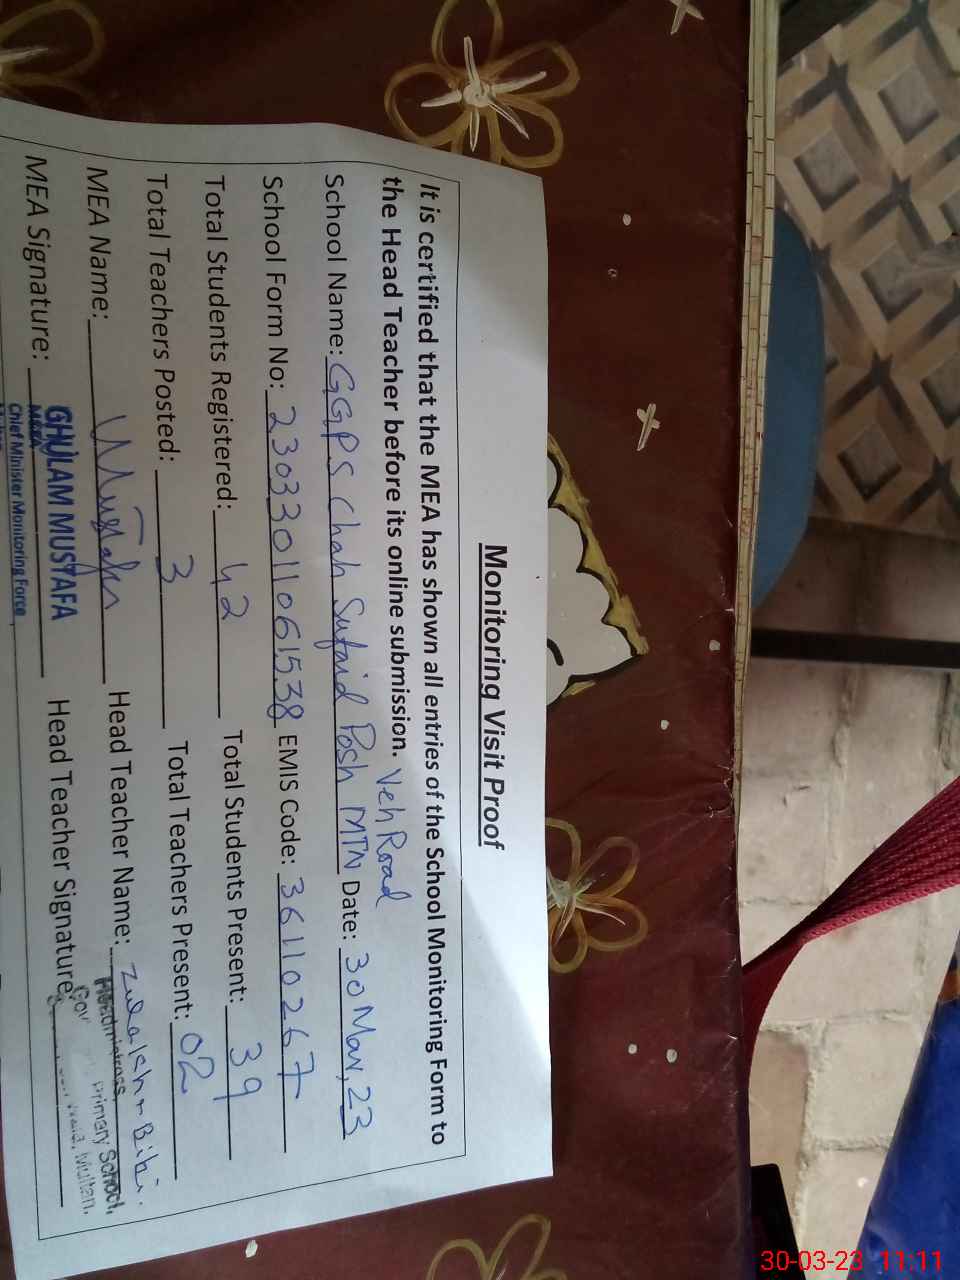 Monitoring Visit Proof
It is certified that the MEA has shown all entries of the School Monitoring Form to
the Head Teacher before its online submission.
Veh Road
School Name: GGPS Chah Sufaid Posh MTN Date: 30 Mar, 23
School Form No: 23033011061538 EMIS Code: 36110267
Total Students Registered: 42 Total Students Present: 39
Total Teachers Posted: 3 Total Teachers Present: 02
MEA Name: Mustafa Head Teacher Name: Bibi.
Headmistress,
MEA Signature: Head Teacher Signature:
GHULAM MUSTAFA
MEA
Chief Minister Monitoring Force
Primary School,
Multan.
30-03-23 11:11